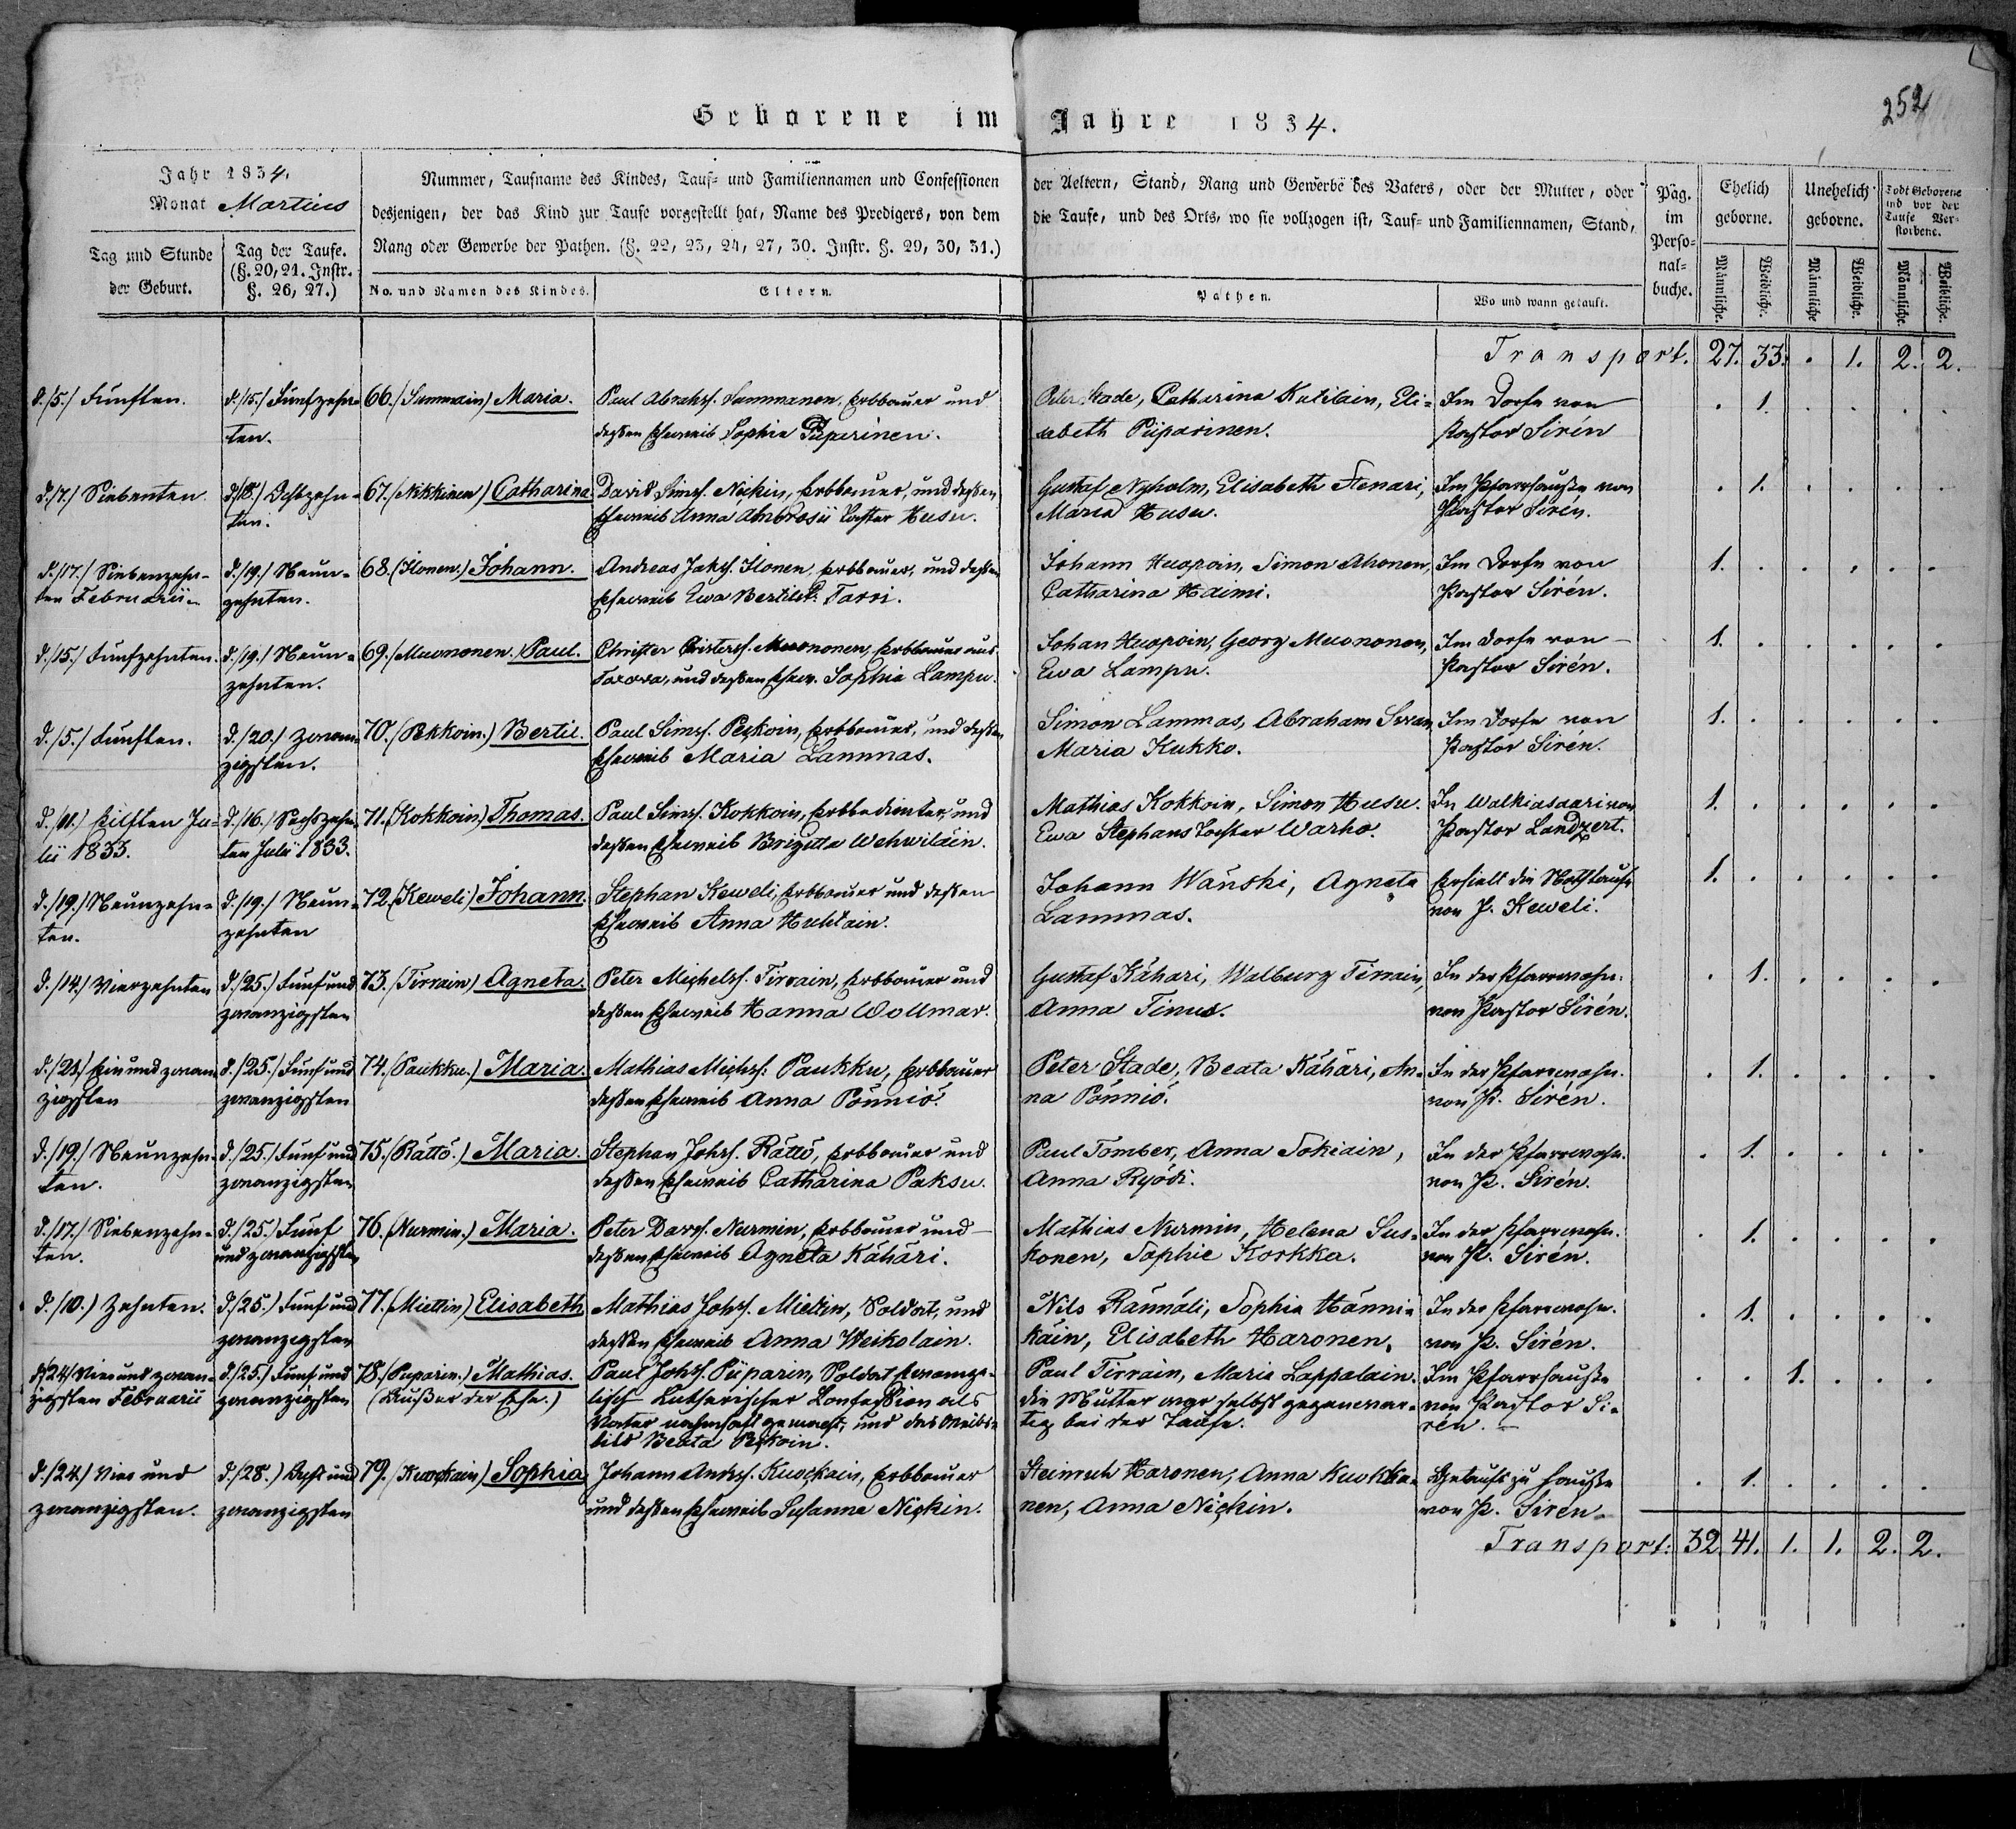 Geborene im Jahre 1834.
252
Jahr 1834.
Monat Martius
Tag und Stunde der Geburt.
Tag der Taufe. (§. 20, 21. Instr. §. 26, 27.)
Nummer, Taufname des Kindes, Tauf- und Familiennamen und Confessionen der Aeltern, Stand, Rang und Gewerbe des Vaters, oder der Mutter, oder
desjenigen, der das Kind zur Taufe vorgestellt hat, Name des Predigers, von dem die Taufe, und des Orts, wo sie vollzogen ist, Tauf- und Familiennamen, Stand,
Rang oder Gewerbe der Pathen. (§. 22, 23, 24, 27, 30. Instr. §. 29, 30, 31.)
No. und Namen des Kindes.
Eltern.
Pathen.
Wo und wann getauft.
Pag. im Perso-nal-buche.
Ehelich geborne.
Unehelich geborne.
Todt Geborene und vor der Taufe Ver-storbene.
Männliche. Weibliche. Männliche Weibliche. Männliche. Weibliche.
Transport. 27. 33. . 1. 2. 2.
d. /5./ Fünften.
d. /15./ Fünfzehn-
ten.
66. (Summain) Maria.
Paul Abrahs. Summanen, Erbbauer und
deßen Eheweib Sophia Piiparinen.
Peter Stade, Catharina Kulilain, Eli-
sabeth Piiparinen.
Im Dorfe von
Pastor Sirén
. 1. . . . .
d. /7./ Siebenten.
d. /18./ Achtzehn-
ten.
67. (Nikkinen) Catharina.
David Sims. Nickin, Erbbauer, und deßen
Eheweib Anna Ambrosii Tochter Husu.
Gustaf Nyholm, Elisabeth Stenari,
Maria Husu.
Im Pfarrhauße von
Pastor Sirén.
. 1. . . . .
d. /17./ Siebenzehn-
ten Februarii.
d. /19./ Neun-
zehnten.
68. (Ilonen.) Johann.
Andreas Jaks. Ilonen, Erbbauer, und deßen
Eheweib Ewa Bertilst. Tarvi.
Johann Huopoin, Simon Ahonen,
Catharina Haimi.
Im Dorfe von
Pastor Sirén.
1. . . . . .
d. /15./ Fünfzehnten.
d. /19./ Neun-
zehnten.
69. (Muononen.) Paul.
Christer Christers. Muononen, Erbbauer aus
und deßen Ehew. Sophia Lampu.
Johan Huopoin, Georg Muononen,
Ewa Lampu.
Im Dorfe von
Pastor Sirén.
1. . . . . .
d. /5./ Fünften.
d. /20./ Zwan-
zigsten.
70. (Pekkoin.) Bertil.
Paul Sims. Peckoin, Erbbauer, und deßen
Eheweib Maria Lammas.
Simon Lammas, Abraham
Maria Kukko.
Im Dorfe von
Pastor Sirén.
1. . . . . .
d. /11./ Eilften Ju-
lii 1833.
d. /16./ Sechszehn-
ten Julii 1833.
71. (Kokkoin) Thomas.
Paul Sims. Kokkoin, Erbbedienter, und
deßen Eheweib Brigitta Wehwiläin.
Mathias Kokkoin, Simon Husu.
Ewa Stephans Tochter Warho.
In Walkiasaari von
Pastor Landzert.
1. . . . . .
d. /19./ Neunzehn-
ten.
d. /19./ Neun-
zehnten
72. (Keweli) Johann.
Stephan Keweli, Erbbauer und deßen
Eheweib Anna Huhtain.
Johann Wänski, Agneta
Lammas.
Erhielt die Nothtaufe
von J. Keweli.
1. . . . . .
d. /14./ Vierzehnten
d. /25./ Fünf und
zwanzigsten
73. (Tirrain) Agneta.
Peter Michels. Tirrain, Erbbauer und
deßen Eheweib Hanna Wollmar.
Gustaf Kähäri, Walburg Tirrain,
Anna Tinus.
In der Pfarrwohn.
von Pastor Sirén.
. 1. . . . .
d. /21./ Ein und zwan-
zigsten
d. /25./ Fünf und
zwanzigsten
74. (Paukku.) Maria.
Mathias Michs. Paukku, Erbbauer
deßen Eheweib Anna Pönniö.
Peter Stade, Beata Kähäri, An-
na Pönniö.
In der Pfarrwohn.
von P. Sirén.
. 1. . . . .
d. /19./ Neunzehn-
ten.
d. /25./ Fünf und
zwanzigsten
75. (Rättö.) Maria.
Stephan Johs. Rättö, Erbbauer und
deßen Eheweib Catharina Paksu.
Paul Tomber, Anna Tokiain,
Anna Ryödi.
In der Pfarrwohn.
von P. Sirén.
. 1. . . . .
d. /17./ Siebenzehn-
ten.
d. /25./ Fünf
und zwanzigsten
76. (Nurmin.) Maria.
Peter Davs. Nurmin, Erbbauer und
deßen Eheweib Agneta Kähäri.
Mathias Nurmin, Helena Sus-
konen, Sophie Korkka.
In der Pfarrwohn.
von P. Sirén.
. 1. . . . .
d. /10./ Zehnten.
d. /25./ Fünf und
zwanzigsten
77. (Miettin) Elisabeth
Mathias Johs. Miettin, Soldat, und
deßen Eheweib Anna Weikolain.
Nils Rännäli, Sophia Hänni-
käin, Elisabeth Haronen.
In der Pfarrwohn.
von P. Sirén.
. 1. . . . .
d. /24./ Vier und zwan-
zigsten Februarii
d. /25./ Fünf und
zwanzigsten
78. (Puparin.) Mathias.
(Außer der Ehe.)
Paul Johs. Piiparin, Soldat Evange-
lisch Lutherischer Confession als
Vater nahmhaft gemacht, und das Weibs-
bild Beata Peckoin.
Paul Tirrain, Maria Lappalain.
die Mutter war selbst gegenwär-
tig bei der Taufe.
Im Pfarrhauße
von Pastor Si-
rén.
. . 1. . . .
d. /24./ Vier und
zwanzigsten.
d. /28./ Acht und
zwanzigsten
79. (Kuockain) Sophia
Johann Anders. Kuockain, Erbbauer
und deßen Eheweib Susanna Nickin.
Heinrich Haronen, Anna Kuokka-
nen, Anna Nickin.
Getauft zu Hauße
von P. Siren.
. 1. . . . .
Transport: 32. 41. 1. 1. 2. 2.